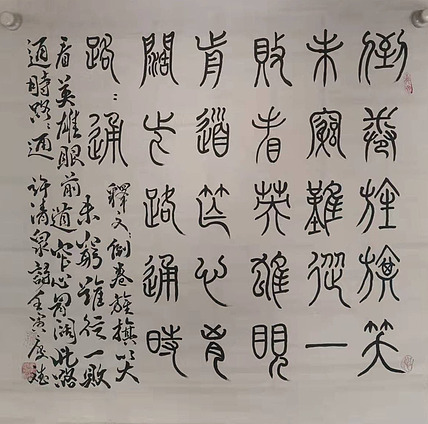 倒卷旌旗笑
未窮難從一
敗看英雄眼
前道窄心胸
闊此路通時
路〻通
釋文：倒卷旌旗笑
未窮難從一敗
看英雄眼前道窄心胸闊此路
通時路〻通 許清泉詩 壬寅